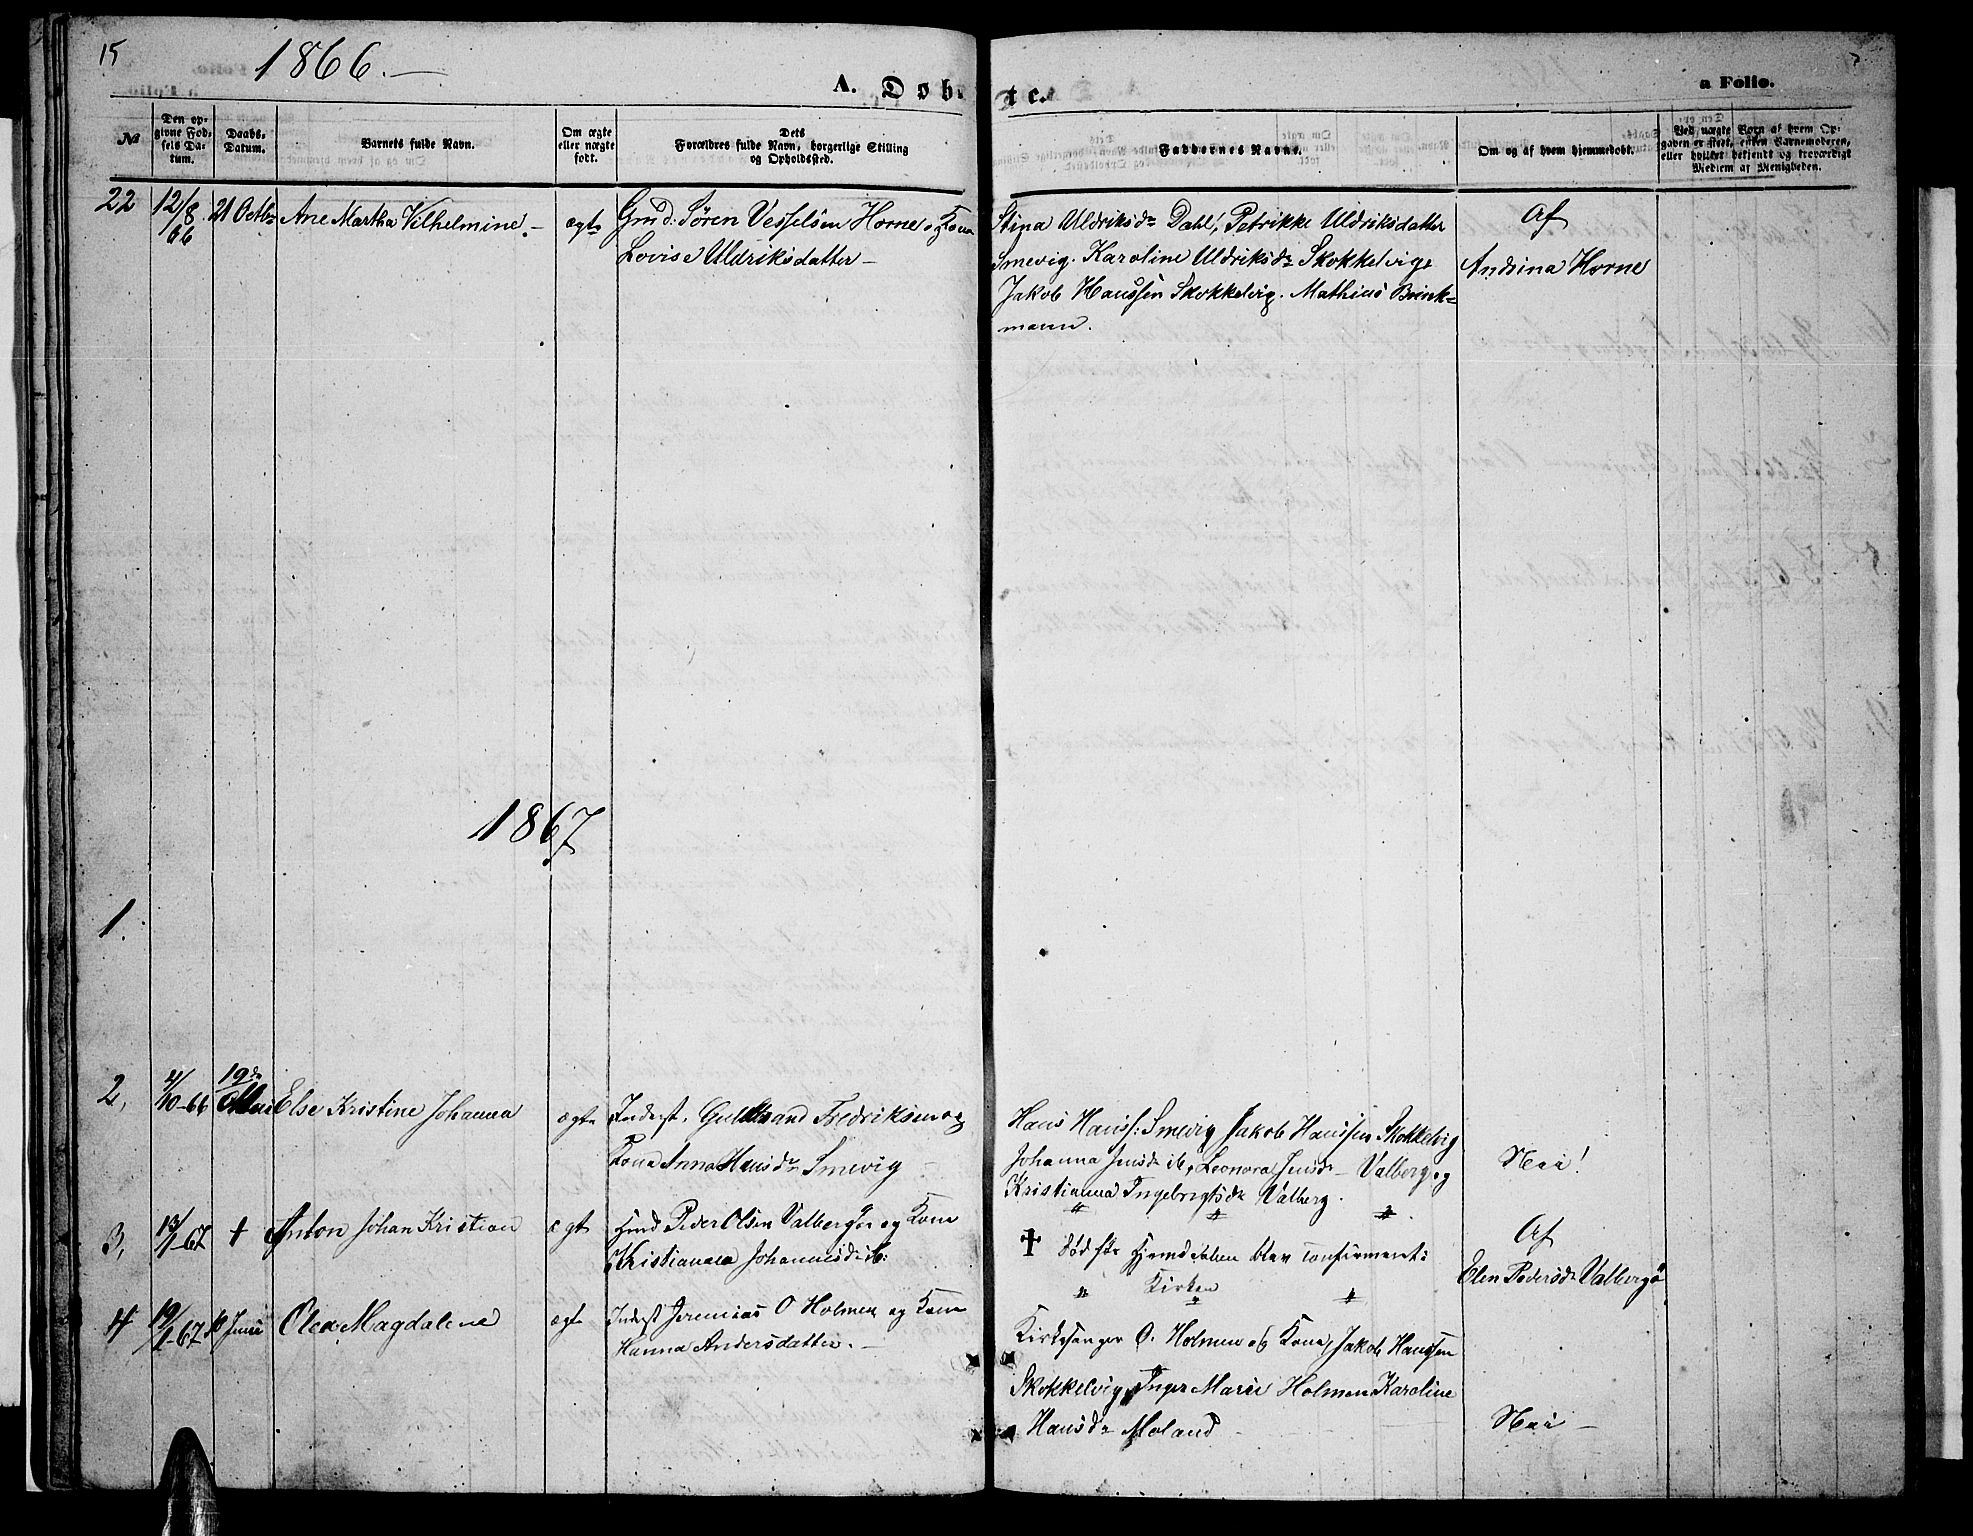 15
1866.—
A. Døbte.
a Folio.
№
Den opgivne Fødsels Datum.
Daabs-Datum.
Barnets fulde Navn.
Om ægte eller uægte født.
Dets Forældres fulde Navn, borgerlige Stilling og Opholdssted.
Faddernes Navne.
Om og af hvem hjemmedøbt.
Ved uægte Børn af hvem Opgaven er skeet, enten Barnemoderen, eller hvilket bekjendt og troværdigt Medlem af Menigheden.
22 12/8 66 21 Octbr Ane Martha Vilhelmine.— ægte Gmd. Søren Vesselsen Horne og Kone
Lovise Uldriksdatter —
Stina Uldriksdr Dahl, Petrikke Uldriksdatter
Smevig. Karoline Uldriksdr Skokkelvig,
Jakob Hanssen Skokkelvig. Mathias Brink-
mann.
Af
Andrina Horne
1867
1.
2, 4/10-66 19de Mai Else Kristine Johanna ægte Inderst. Guldbrand Fredriksen og
Kone Anna Hansdr Smevig
Hans Hanss: Smevig Jakob Hanssen Skokkelvig
Johanna Jensdr ib, Leonora Jensdr — Valberg og
Kristianna Ingebrigtsdr Valberg.
Nei!
3, 13/1-67 + Anton Johan Kristian ægte Gmd Peder Olsen Valbergør og Kone
Kristianna Johannesdr ib:
† Død før Hjemdaaben blev confirmert i
" Kirken "
Af
Elen Pedersdr Valbergø
4 19/1-67 10 Juni Olea Magdalene ægte Inderst Jeremias O Holmen og Kone
Hanna Andersdatter.—
Kirkesanger O. Holmen og Kone, Jakob Hanssen
Skokkelvig, Inger Marie Holmen Karoline
Hansdr Moland
Nei —